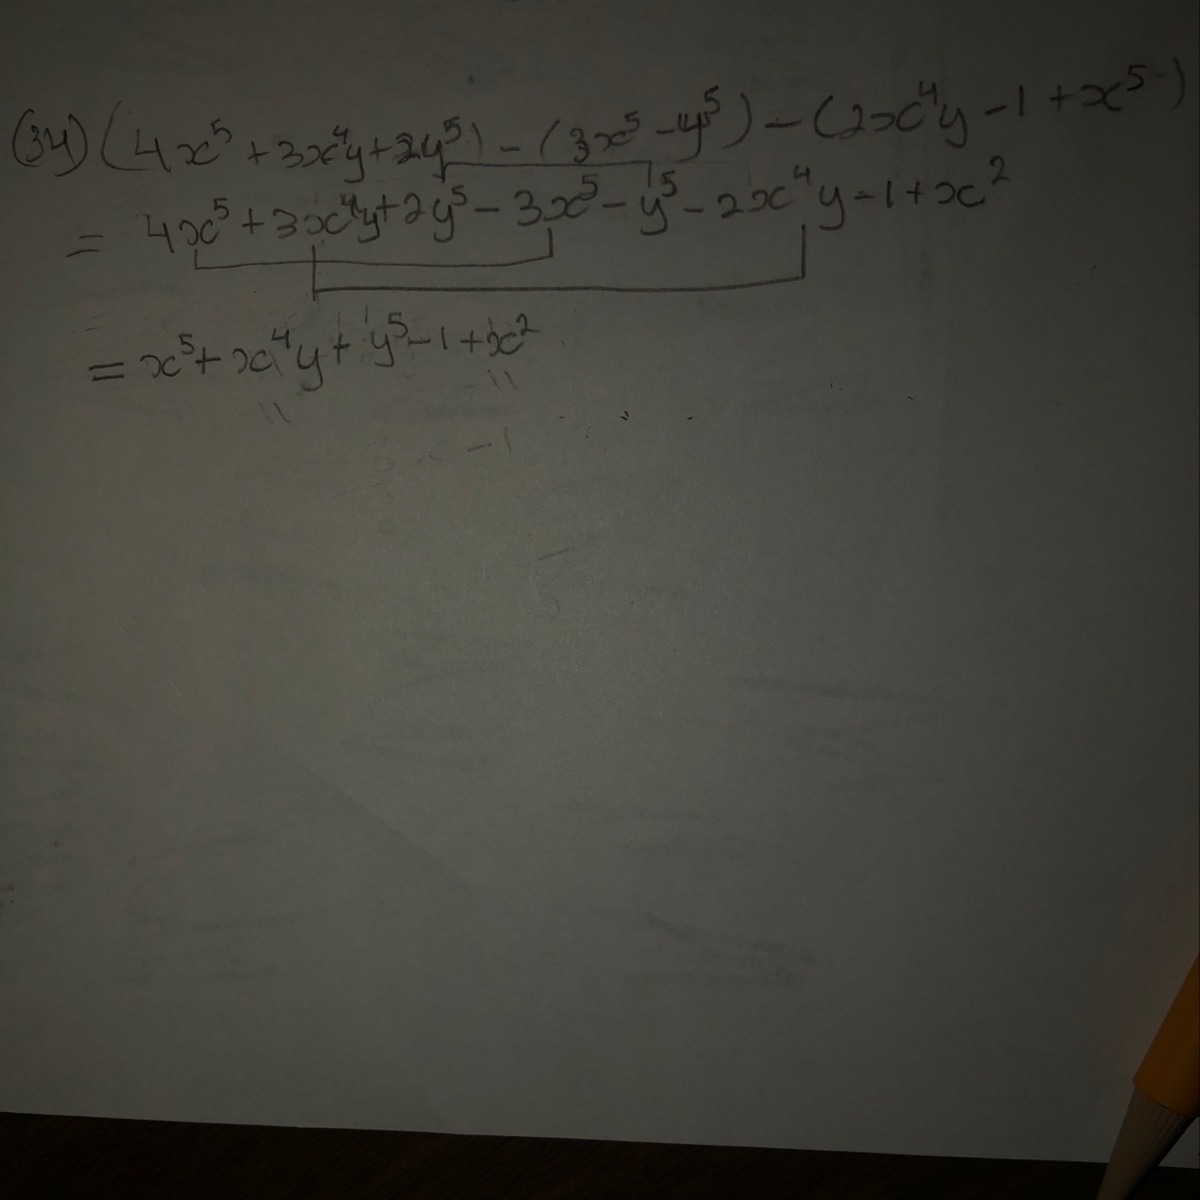 (34) (4x⁵ + 3x⁴y + 2y⁵) - (3x⁵ - y⁵) - (2x⁴y - 1 + x⁵)
= 4x⁵ + 3x⁴y + 2y⁵ - 3x⁵ - y⁵ - 2x⁴y - 1 + x²
= x⁵ + x⁴y + y⁵ - 1 + x²